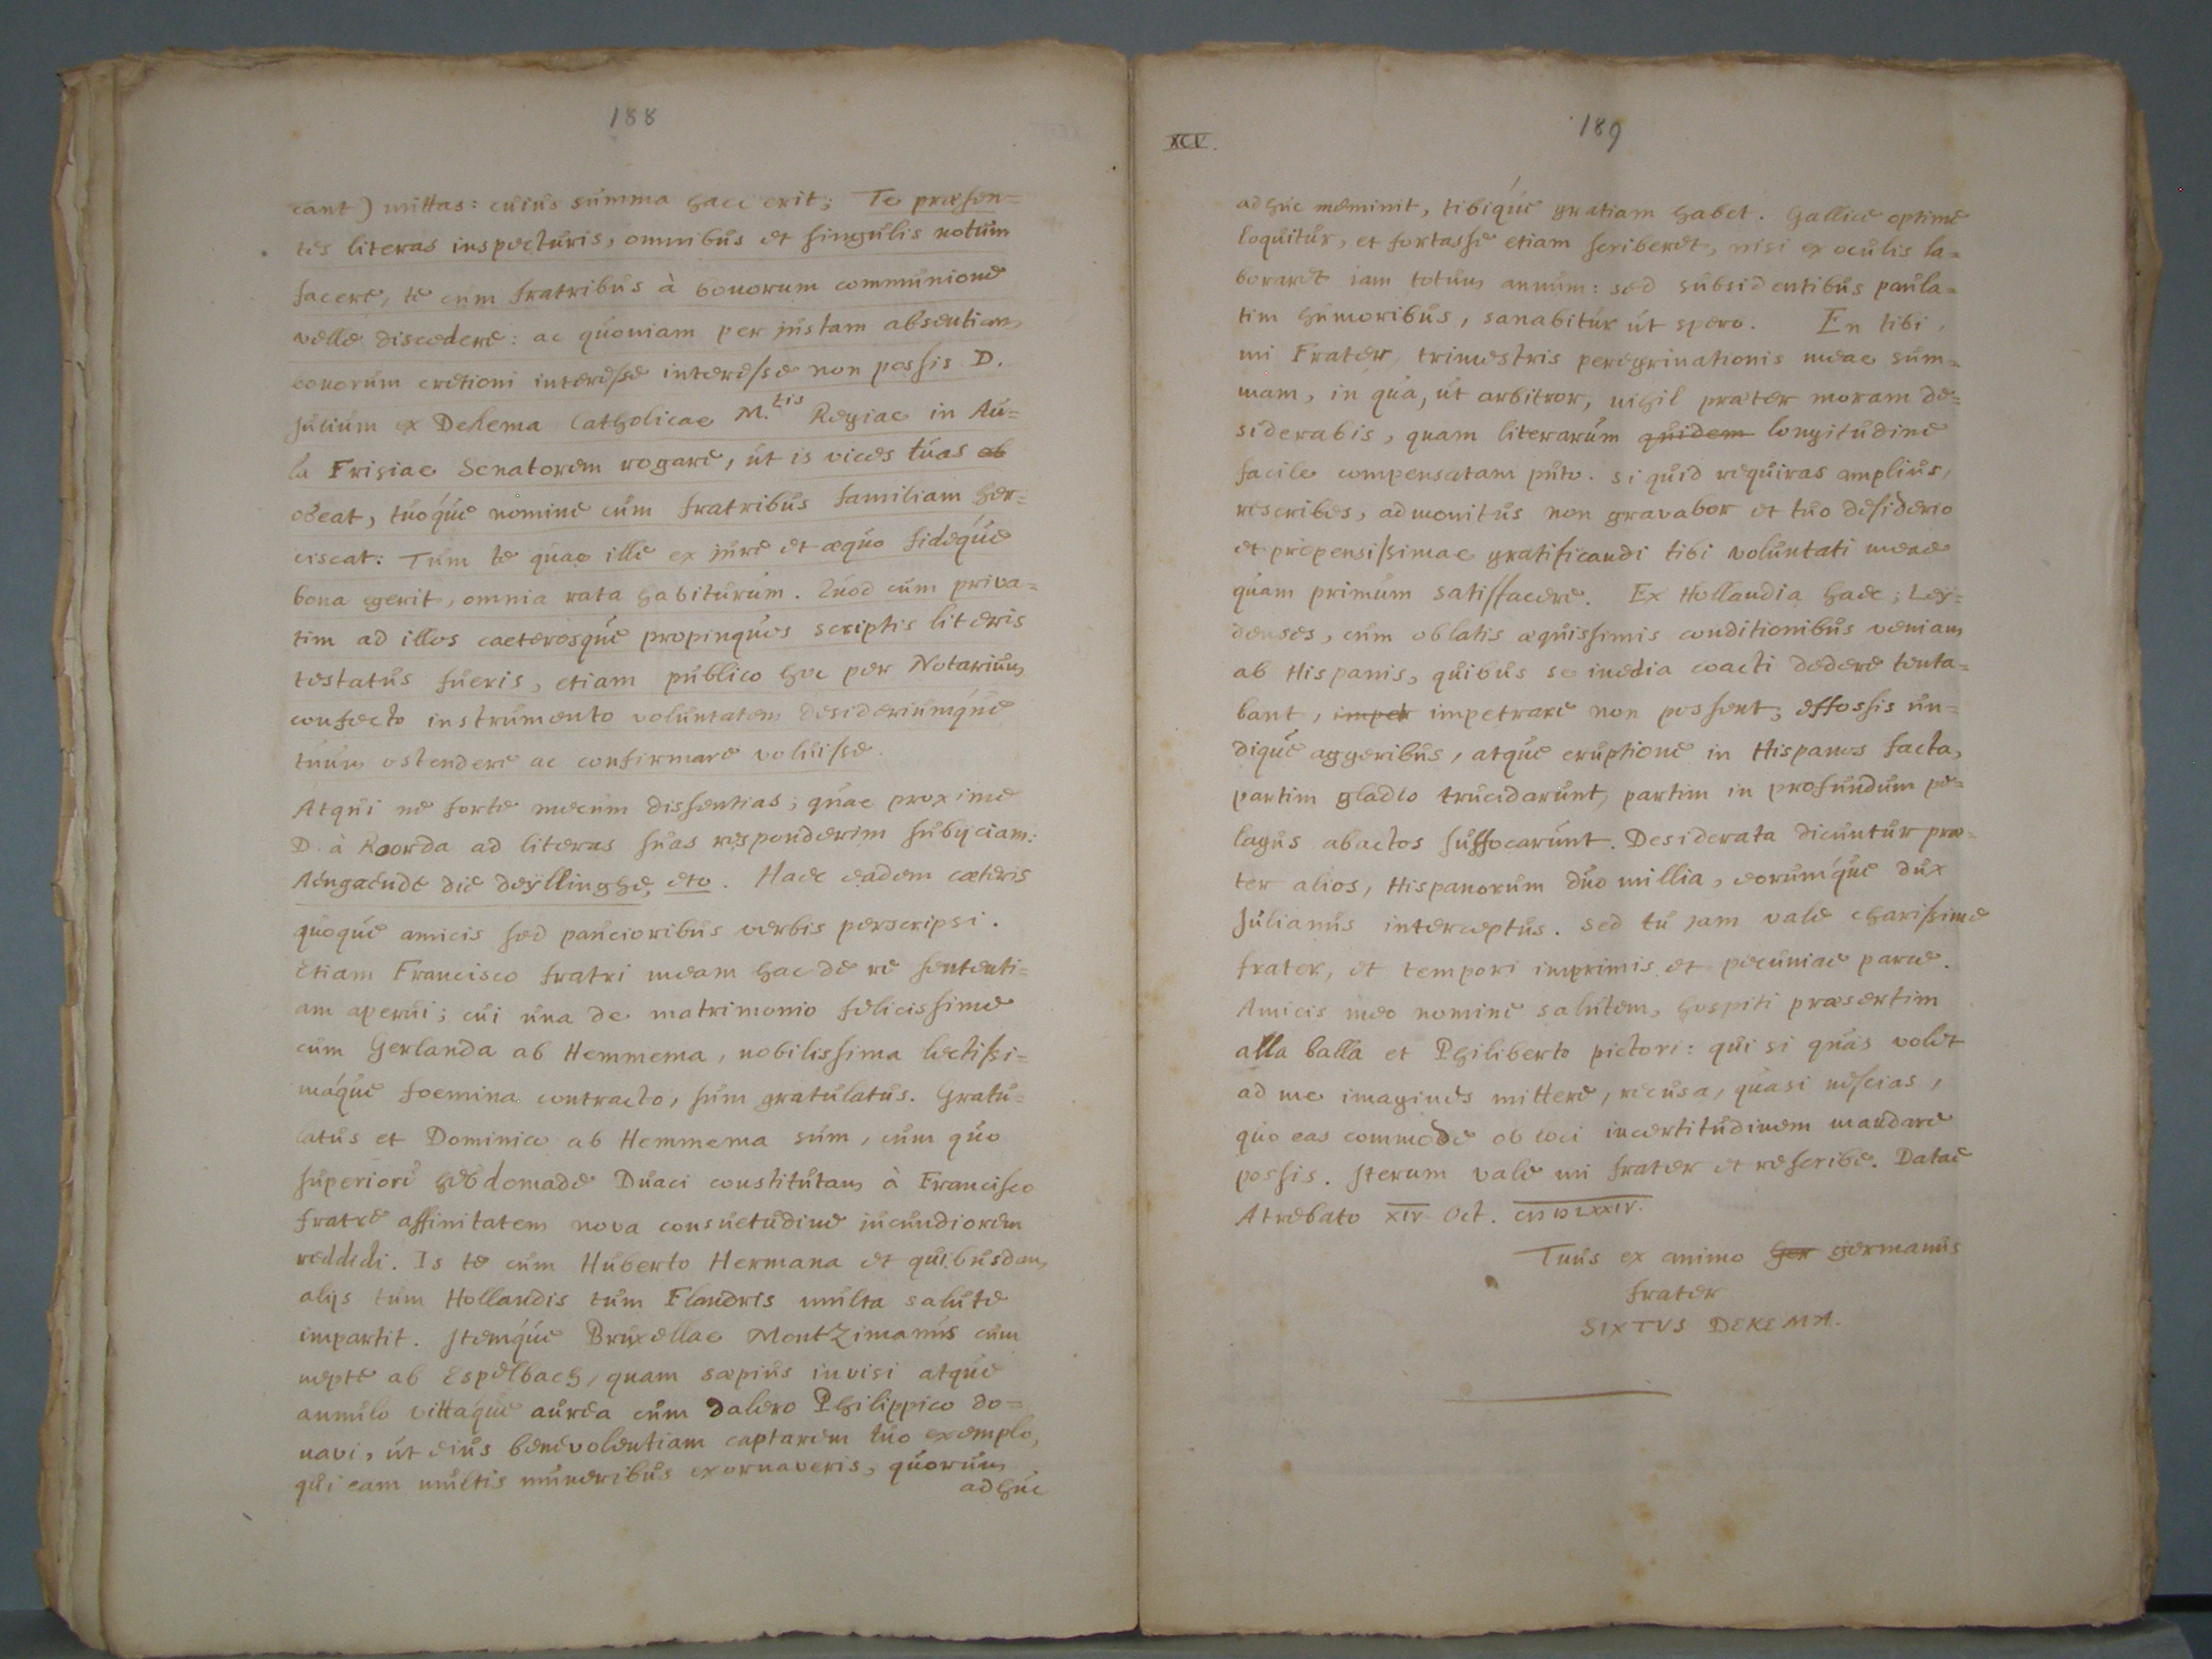 188
cant) mittas: cuius summa haec erit; Te præsen=
tes literas inspecturis, omnibus et singulis notum
facere, te cum fratribus à bonorum communione
velle discedere: ac quoniam per justam absentiam
bonorum cretioni interesse interesse non possis D.
Julium ex Dekema Catholicae M.tis Regiae in Au=
la Frisiae Senatorem rogare, ut is vices tuas ob
obeat, tuoque nomine cum fratribus familiam her=
ciscat: Tum te quae ille ex jure et æquo fideque
bona egerit, omnia rata habiturum. Quod cum priva=
tim ad illos caeterosque propinquos scriptis literis
testatus fueris, etiam publico hoc per Notarium
confecto instrumento voluntatem desideriumque
tuum ostendere ac confirmare voluisse.
Atqui ne forte mecum dissentias; quae proxime
D. à Roorda ad literas suas responderim subijciam:
Aengaende die deyllinghe, etc. Haec eadem cæteris
quoque amicis sed paucioribus verbis perscripsi.
Etiam Francisco fratri meam hac de re sententi=
am aperui; cui una de matrimonio felicissime
cum Gerlanda ab Hemmema, nobilissima lectissi=
maque foemina contracto, sum gratulatus. Gratu=
latus et Dominico ab Hemmema sum, cum quo
superiore hebdomade Duaci constitutam à Francisco
fratre affinitatem nova consuetudine jucundiorem
reddidi. Is te cum Huberto Hermana et quibusdam
alijs tum Hollandis tum Flandris multa salute
impartit. Itemque Bruxellae Montzimanus cum
nepte ab Espelbach, quam sæpius invisi atque
annulo vittaque aurea cum dalero Philippico do=
navi, ut eius benevolentiam captarem tuo exemplo,
qui eam multis muneribus exornaveris, quorum
adhuc
XCV.
189
adhuc meminit, tibique gratiam habet. Gallice optime
loquitur, et fortasse etiam scriberet, nisi ex oculis la=
boraret iam totum annum: sed subsidentibus paula=
tim humoribus, sanabitur ut spero. En tibi,
mi Frater, trimestris peregrinationis meae sum=
mam, in qua, ut arbitror, nihil præter moram de=
siderabis, quam literarum quidem longitudine
facile compensatam puto. si quid requiras amplius,
rescribes, admonitus non gravabor et tuo desiderio
et propensissimae gratificandi tibi voluntati meae
quam primum satisfacere. Ex Hollandia haec; Ley=
denses, cum oblatis æquissimis conditionibus veniam
ab Hispanis, quibus se inedia coacti dedere tenta=
bant, impet impetrare non possent; effossis un=
dique aggeribus, atque eruptione in Hispanos facta,
partim gladio trucidarunt, partim in profundum pe=
lagus abactos suffocarunt. Desiderata dicuntur præ=
ter alios, Hispanorum duo millia, eorumque dux
Julianus interceptus. Sed tu jam vale charissime
frater, et tempori imprimis et pecuniae parce.
Amicis meo nomine salutem, hospiti præsertim
alla balla et Philiberto pictori: qui si quas volet
ad me imagines mittere, recusa, quasi nescias,
quo eas commode ob loci incertitudinem mandare
possis. Iterum vale mi frater et rescribe. Datae
Atrebato XIV Oct. CIƆ IƆ LXXIV.
Tuus ex animo ger germanus
frater
SIXTVS DEKEMA.